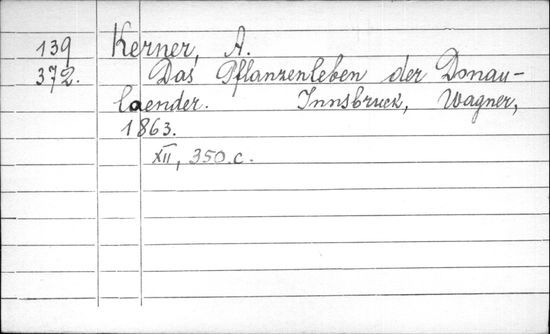 139 Kerner, A.
372. Das Pflanzenleben der Donau-
laender. Innsbruck, Wagner,
1863.
XII, 350.c.